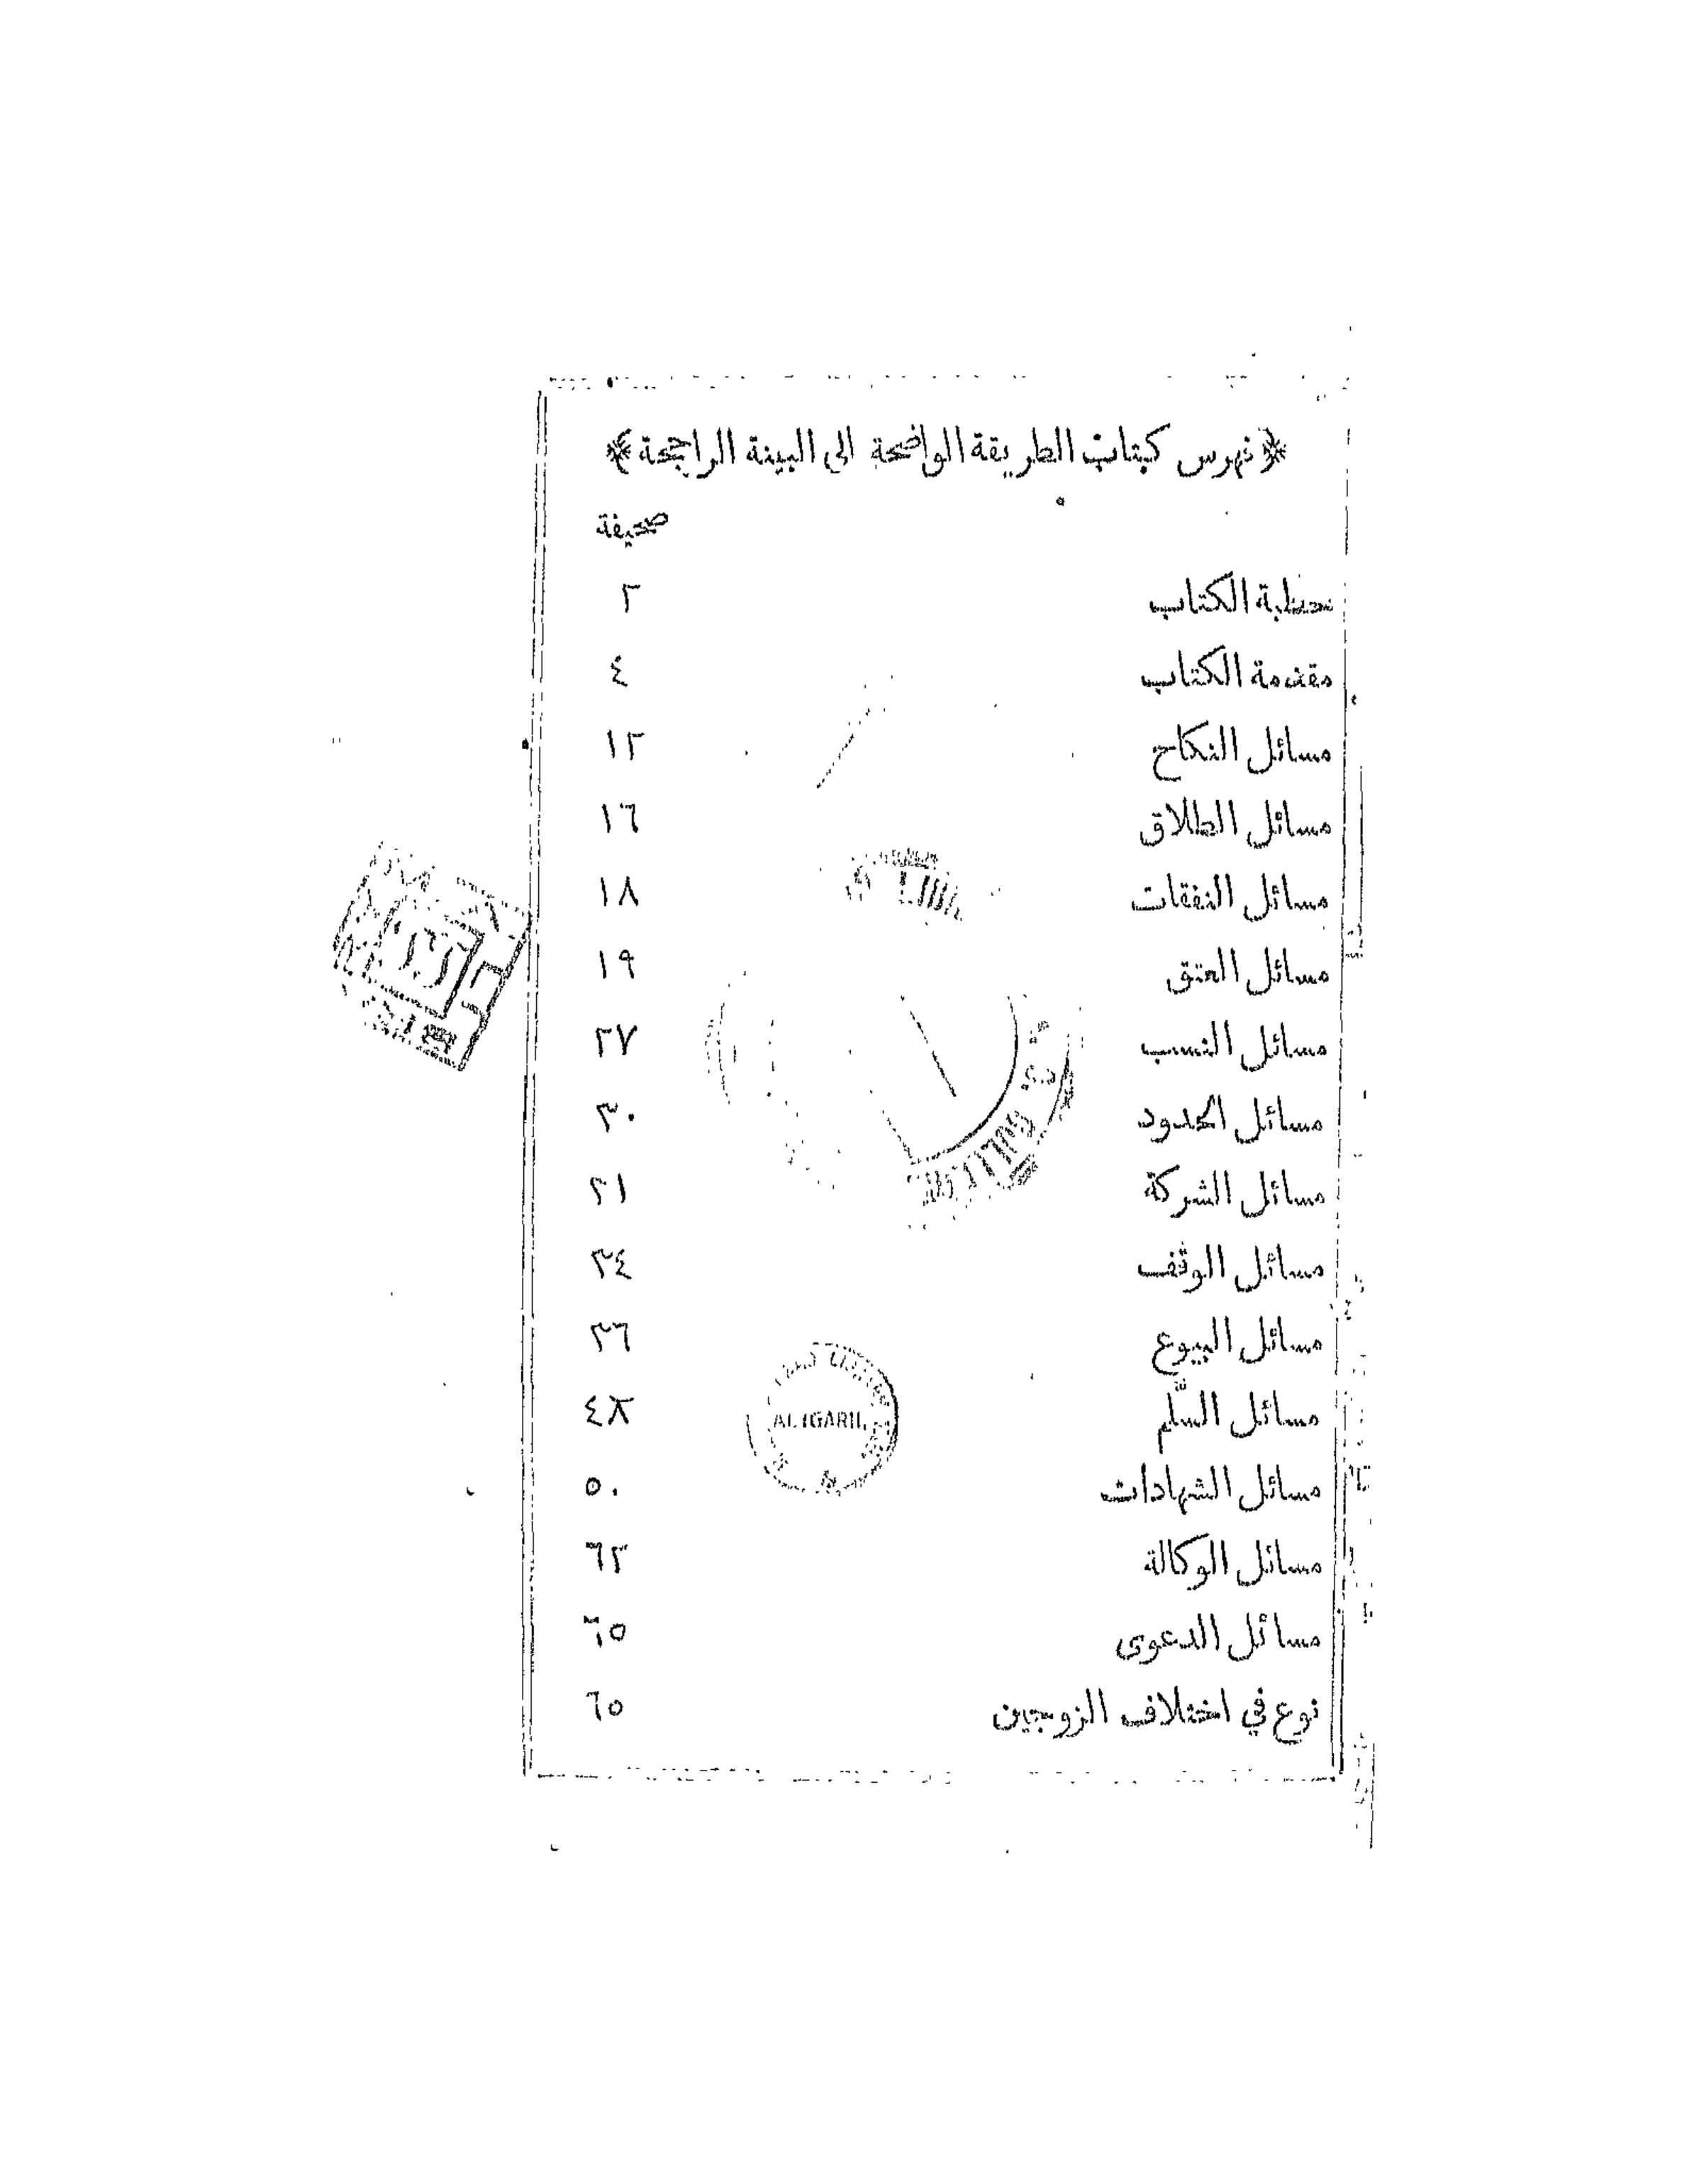 ﴿فهرس كتاب الطريقة الواضحة الى البينة الراجحة﴾
صحيفة
خطبة الكتاب ٢
مقدمة الكتاب ٤
مسائل النكاح ١٢
مسائل الطلاق ١٦
مسائل النفقات ١٨
مسائل العتق ١٩
مسائل النسب ٢٧
مسائل الحدود ٣٠
مسائل الشركة ٣١
مسائل الوقف ٣٤
مسائل البيوع ٣٦
مسائل السَّلم ٤٨
مسائل الشهادات ٥٠
مسائل الوكالة ٦٢
مسائل الدعوى ٦٥
نوع في اختلاف الزوجين ٦٥
ALIGARH